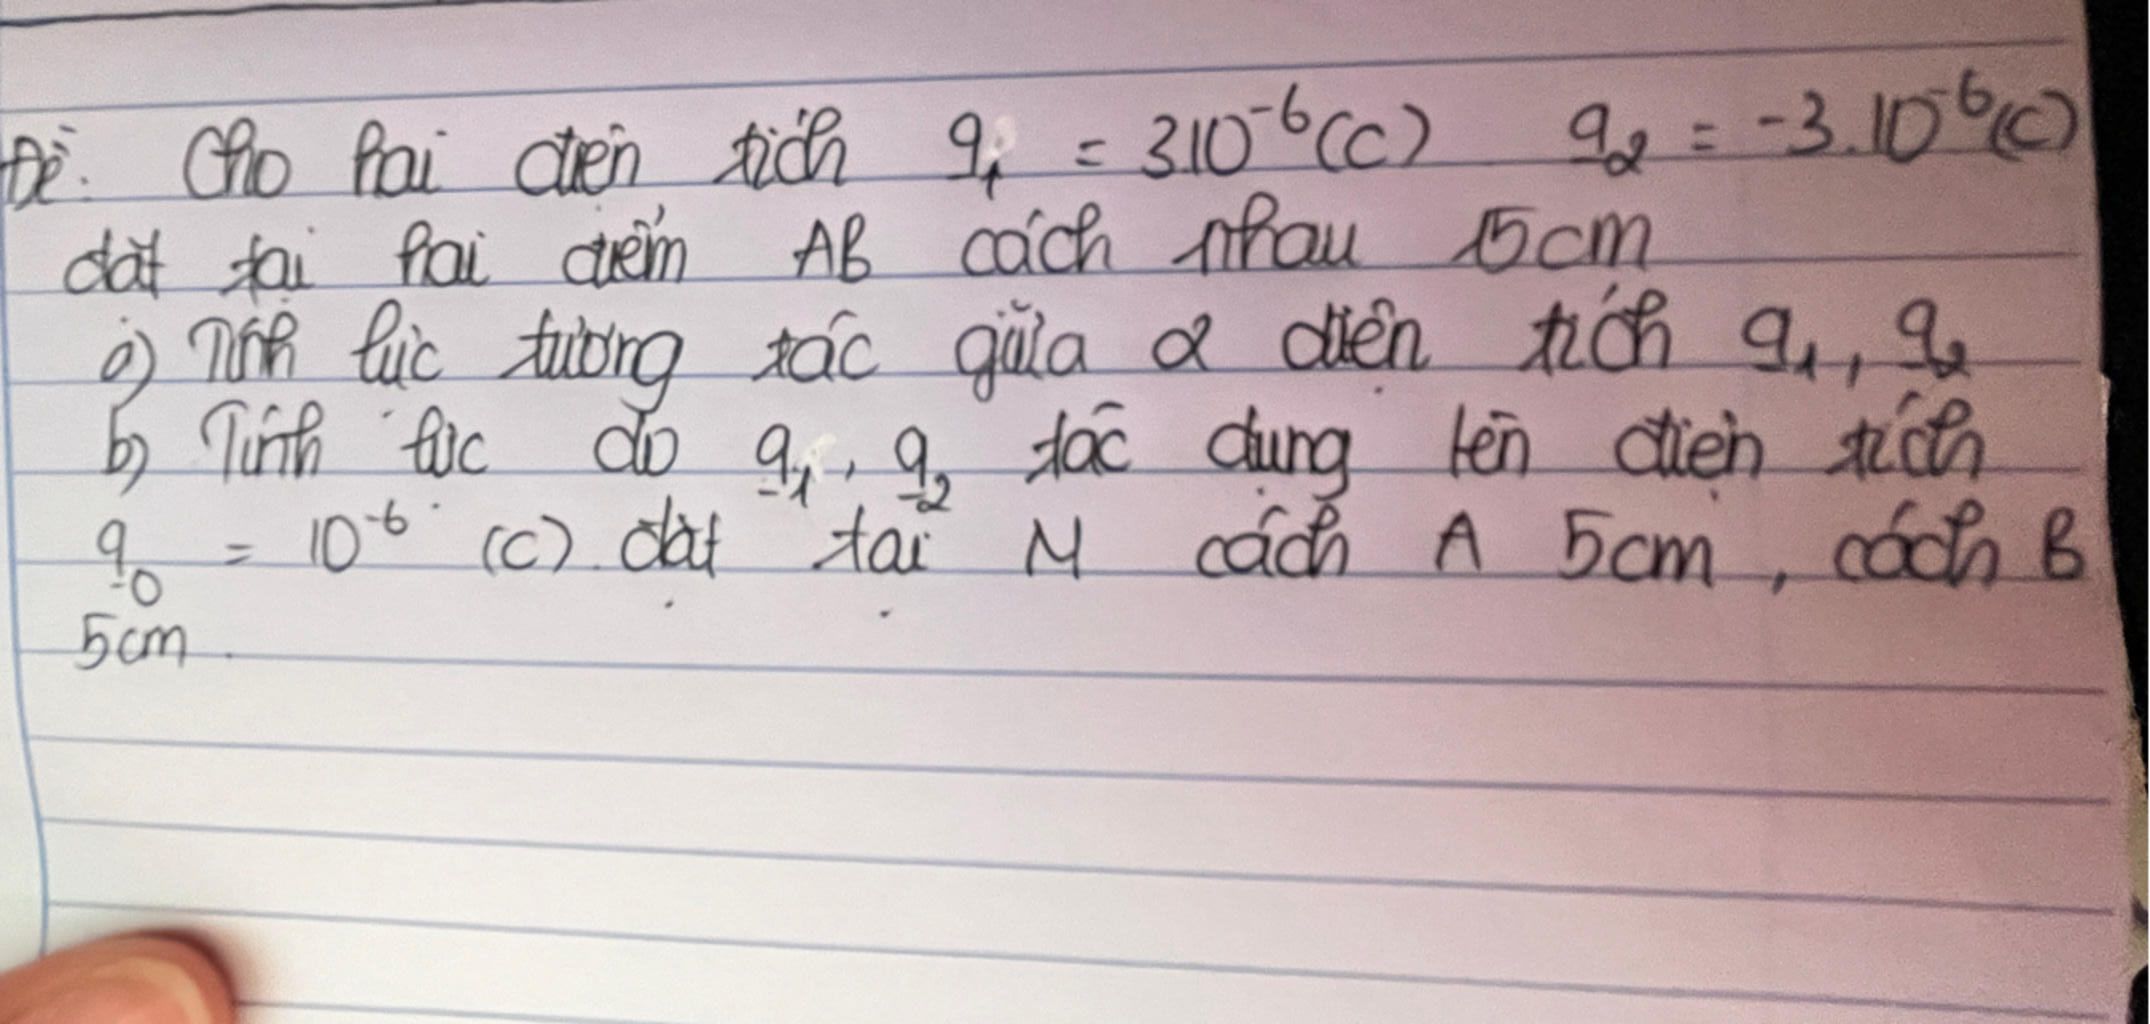 Đề: Cho hai điện tích q₁ = 3.10⁻⁶(C) q₂ = -3.10⁻⁶(C)
đặt tại hai điểm AB cách nhau 15cm
a) Tính lực tương tác giữa 2 điện tích q₁, q₂
b) Tính lực do q₁, q₂ tác dụng lên điện tích
q₀ = 10⁻⁶ (C) đặt tại M cách A 5cm, cách B
5cm.